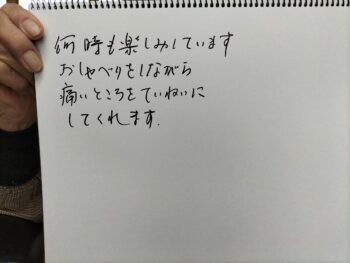 何時も楽しみしています
おしゃべりをしながら
痛いところをていねいに
してくれます.